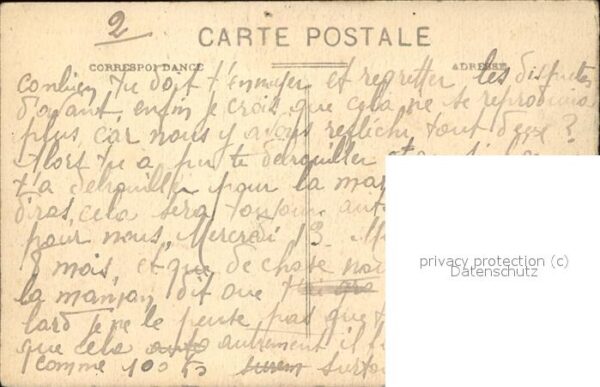 2
CARTE POSTALE
CORRESPONDANCE
ADRESSE
conbien tu doit t'ennuyer et regretter les disputes
d'avant, enfin je crois que cela ne se reproduira
plus, car nous y avons réflechi tout deux ?
Alors tu a pu te debrouiller et
t'a debrouiller pour la
diras, cela sera toujours
pour nous, Mercredi 13
8 mois, et que de chose
la maman, dit que
lard je ne le pense pas que
que cela autrement il
comme 100 surtout
privacy protection (c)
Datenschutz